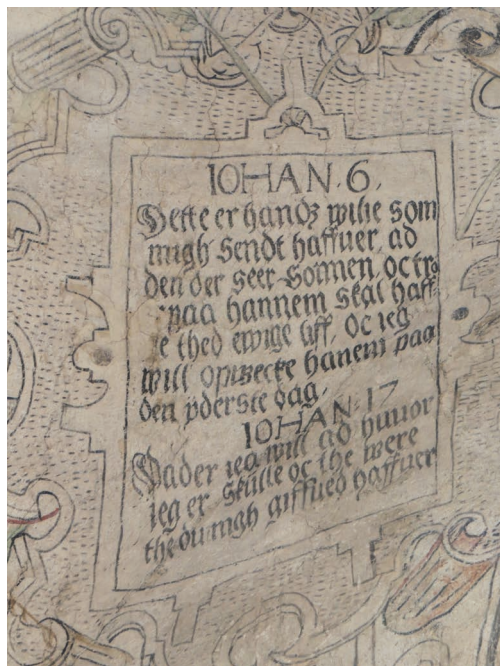 IOHAN. 6.
Dette er handz wilie som
migh Sendt haffuer, ad
den der seer Sonnen, oc tro
paa hannem skal haff-
e thed ewige liff, Oc ieg
will opwecke hanem paa
den yderste dag.
IOHAN. 17
Vader ieg will ad huuor
ieg er skulle oc the were
the du migh giffued haffuer